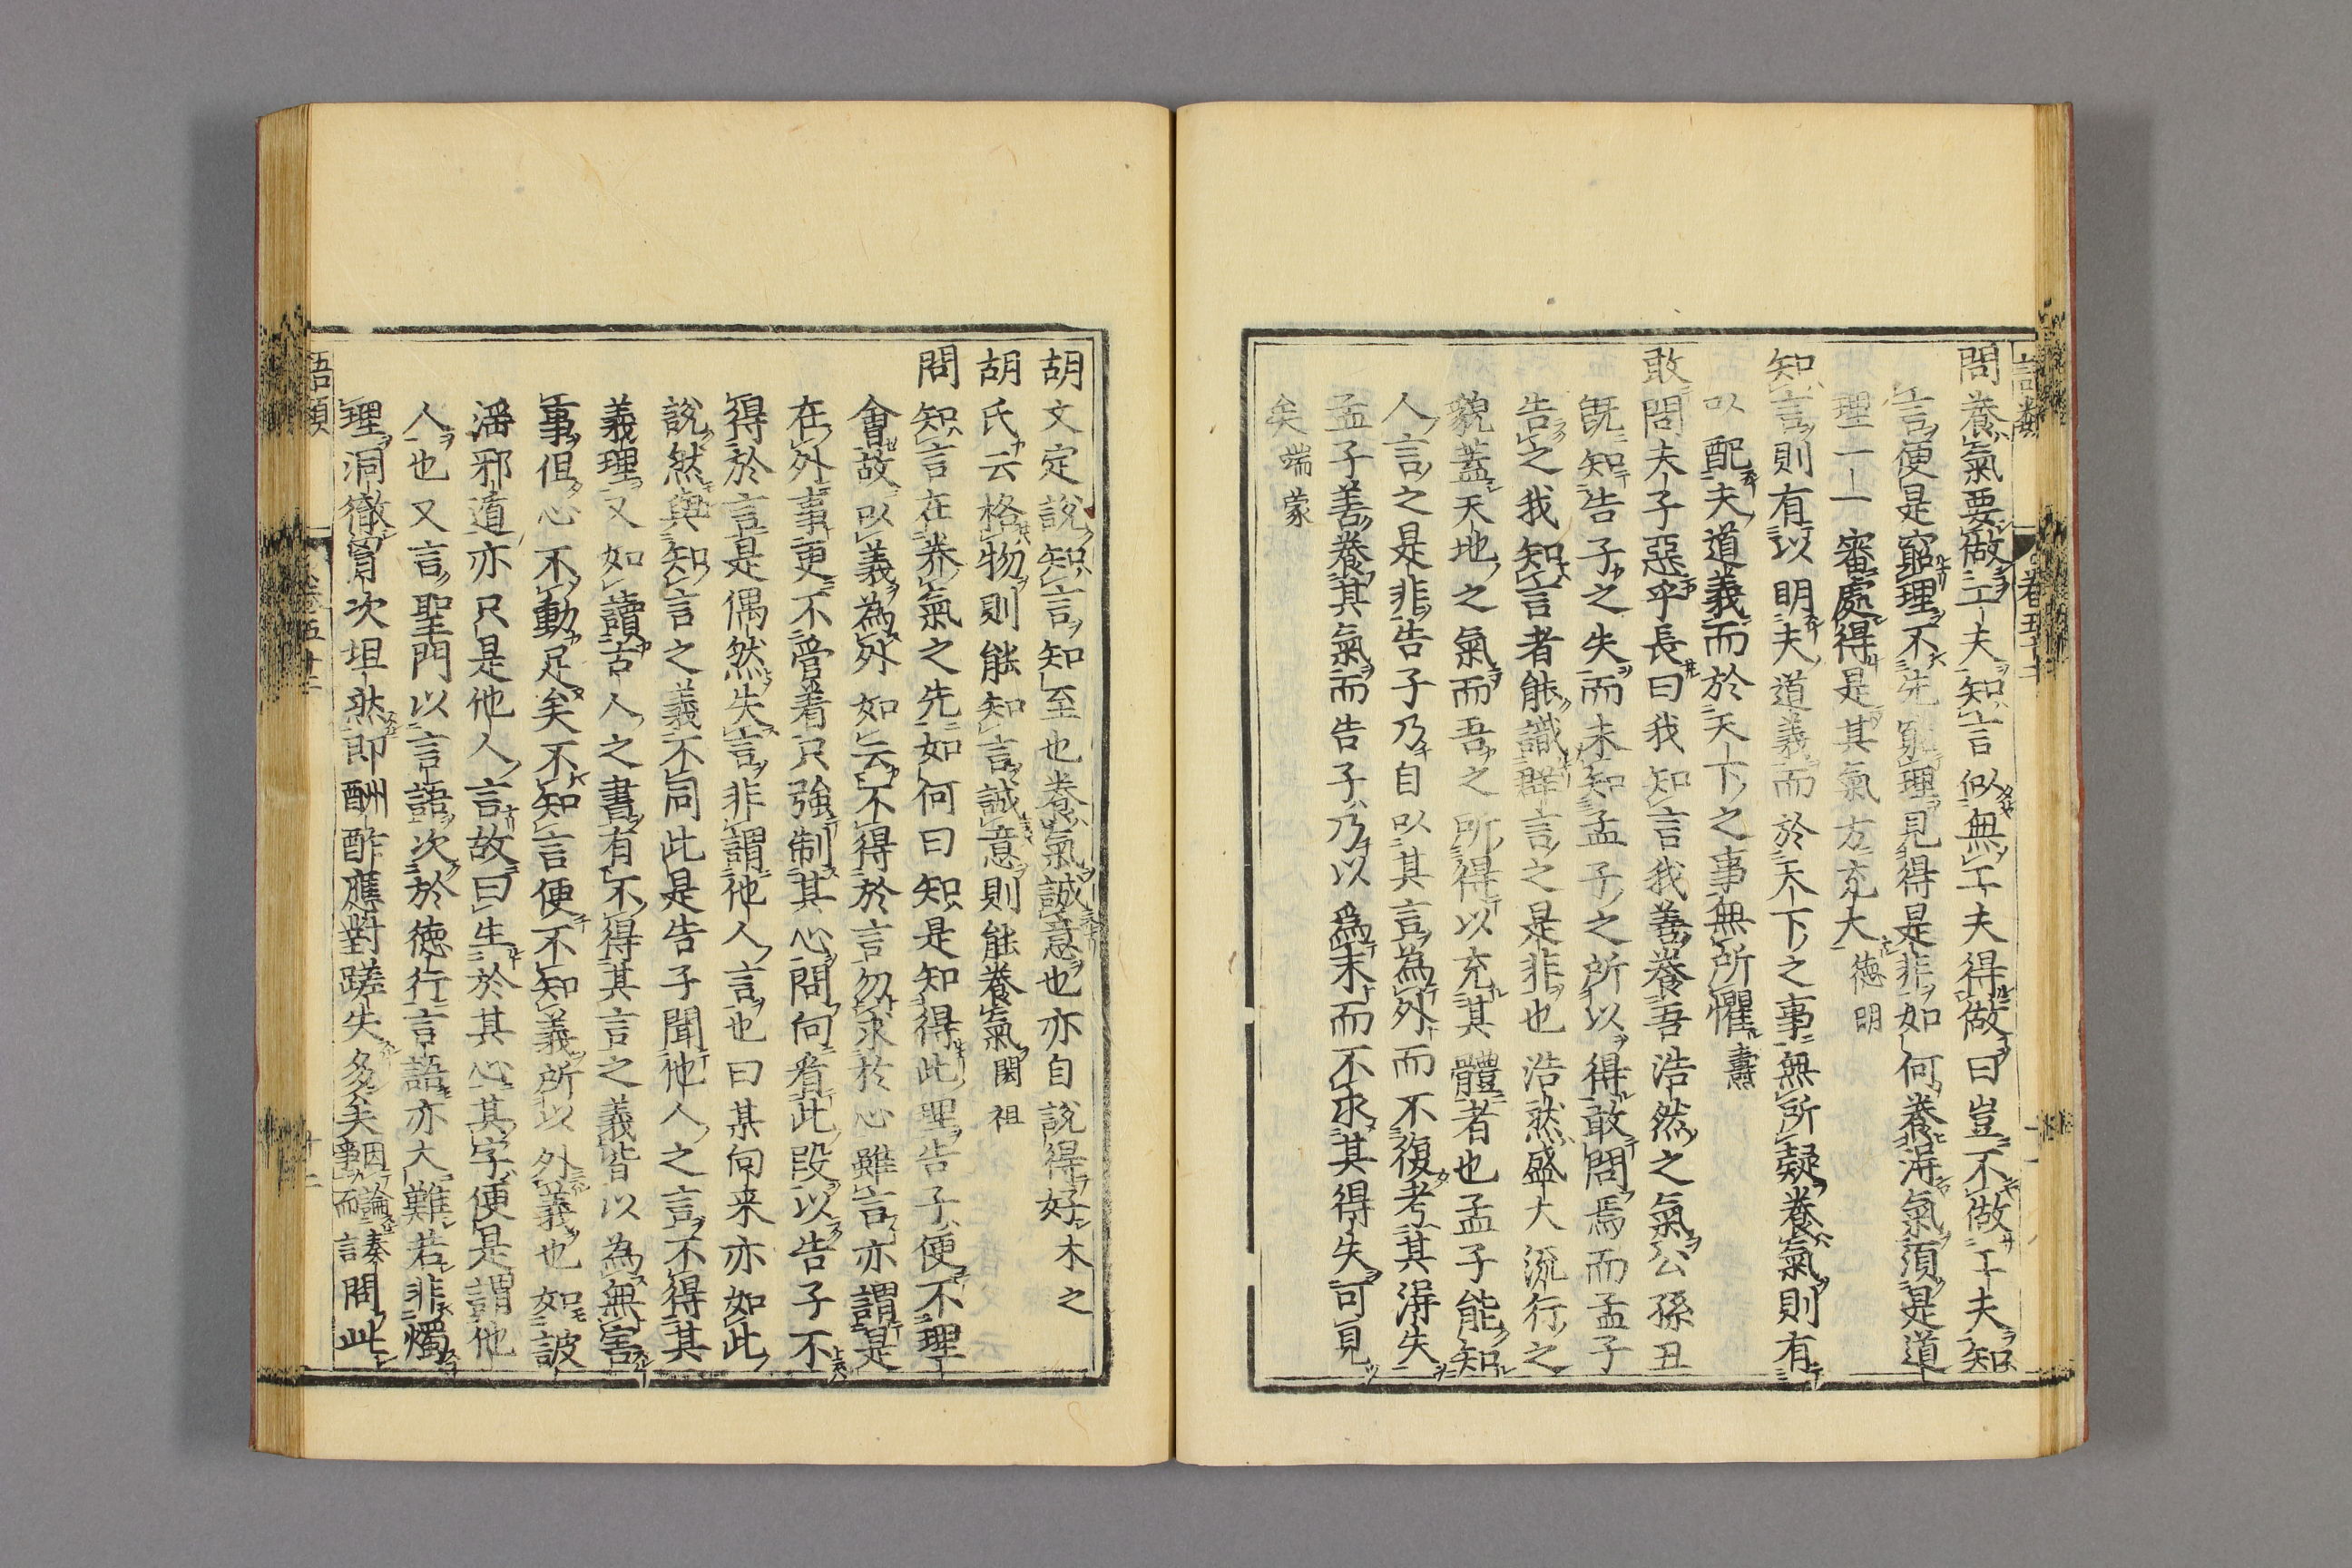 問養氣要做工夫知言似無工夫得做曰豈不做工夫知
言便是窮理不先窮理見得是非如何養得氣須是道
理一一審處得是其氣方充大德明
知言則有以明夫道義而於天下之事無所疑養氣則有
以配夫道義而於天下之事無所懼燾
敢問夫子惡乎長曰我知言我善養吾浩然之氣公孫丑
既知告子之失而未知孟子之所以得敢問焉而孟子
告之我知言者能識群言之是非也浩然盛大流行之
貌蓋天地之氣而吾之所得以充其體者也孟子能知
人言之是非告子乃自以其言為外而不復考其得失
孟子善養其氣而告子乃以為末而不求其得失可見
矣端蒙
胡文定說知言知至也養氣誠意也亦自說得好木之
胡氏云格物則能知言誠意則能養氣閎祖
問知言在養氣之先如何曰知是知得此理告子便不理
會故以義為外如云不得於言勿求於心雖言亦謂是
在外事更不管着只強制其心問向看此段以告子不
得於言是偶然失言非謂他人言也曰某向来亦如此
說然與知言之義不同此是告子聞他人之言不得其
義理又如讀古人之書有不得其言之義皆以為無害
事但心不動足矣不知言便不知義所以外義也如詖
淫邪遁亦只是他人言故曰生於其心其字便是謂他
人也又言聖門以言語次於德行言語亦大難若非燭
理洞徹胷次坦然即酬酢應對蹉失多矣因論奏事而問此
語類 卷五十二 十二